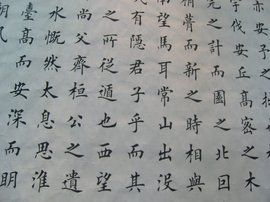 亦安予之
宇伐安丘高密之木
之計而園之北因
葺而新之時相與
南望馬耳常山出沒
幾有隱君子乎而其
之所從遁也西望
尚父齊桓公之遺
水慨然太息思淮
臺高而安深而明